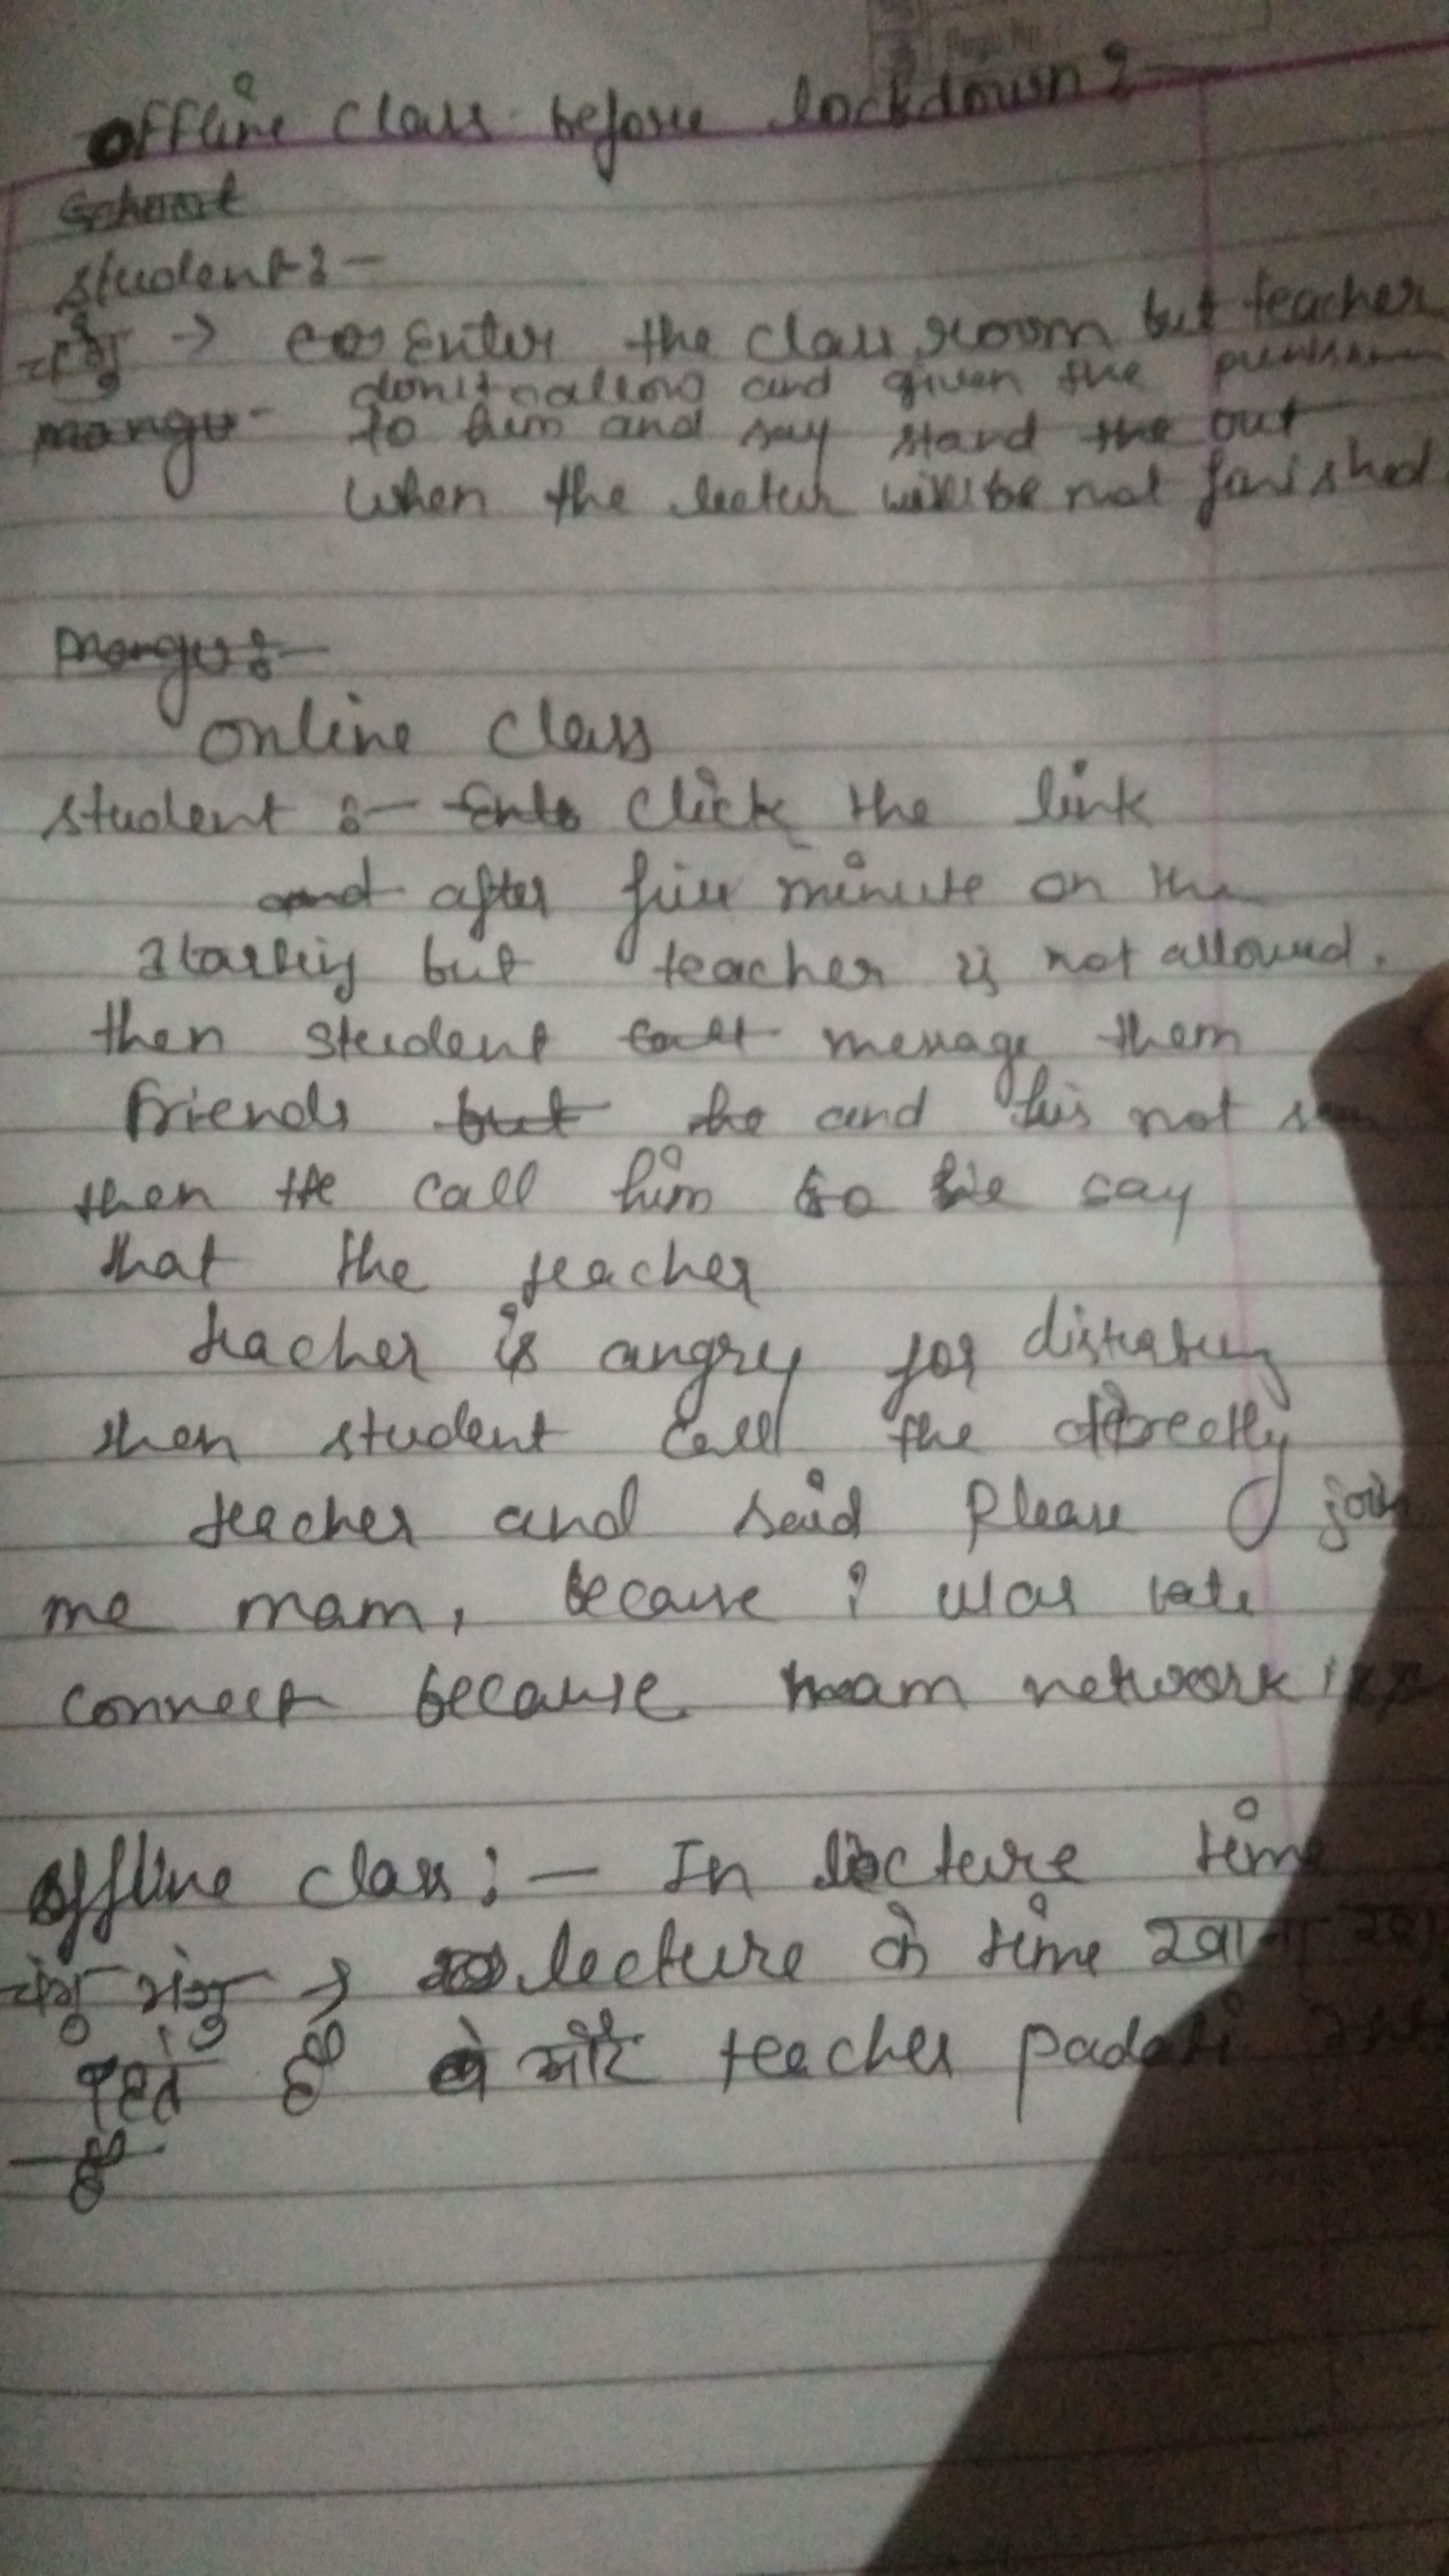 offline class before lockdown:-
student:-
चंगु → Enter the class room but teacher
don't allow and given the
to him and say stand the out
when the lectur will be not finished
mangu:-
online class
student :- click the link
after five minute on the
but teacher is not allowed.
then student message them
friends and his not
then the call him so he say
that the teacher
teacher is angry for
then student call the directly
teacher and said Please join
me mam, because i was late
connect because mam network
offline class:- In lecture time
चंगु मंगु → lecture के time खाना
रहते हैं और teacher padati
हैं